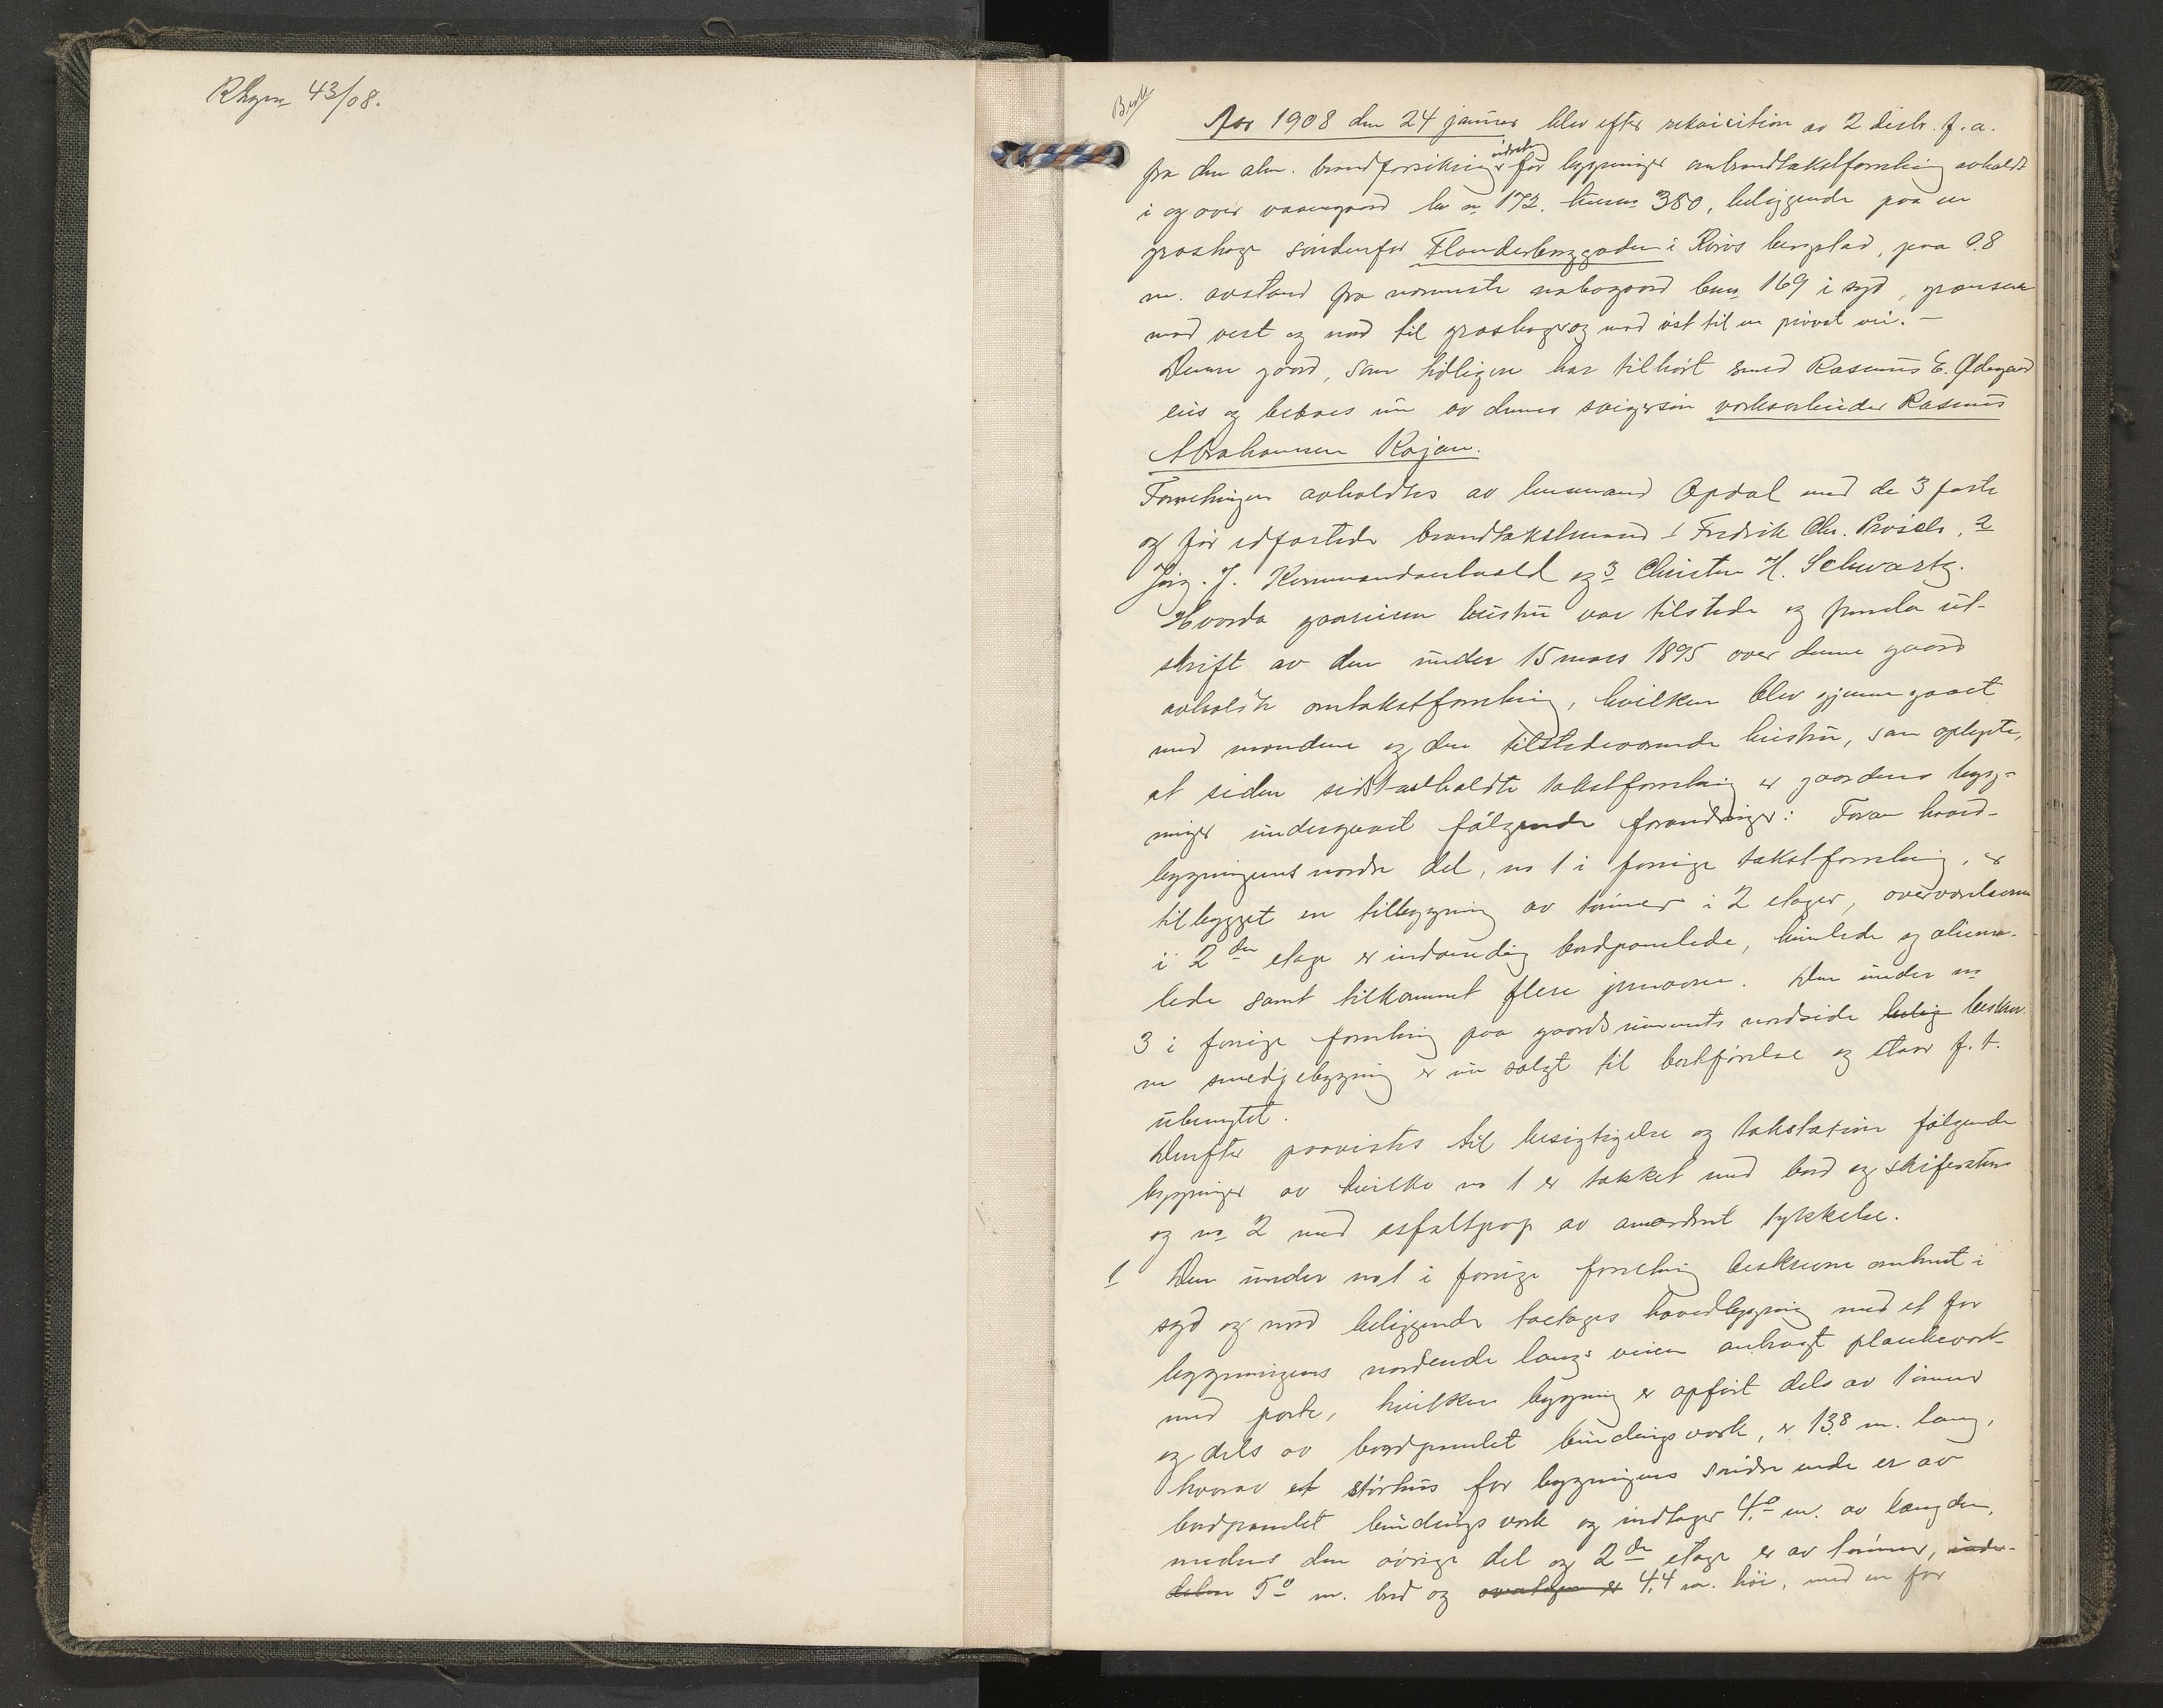 Rhgsn 43/08.
Aar 1908 den 24 januar blev efter rekvicition av 2 distr. f. a.
fra den alm. brandforsikrings indretn for bygninger ombrandtakstforretning avholdt
i og over vaanegaard br n 172. husn 380, beliggende paa en
græshage søndenfor Flanderborggaden i Røros bergstad, paa 0.8
m. avstand fra nærmeste nabogaard bn 169 i syd, grænsen
mod vest og nord til græshager og mod øst til en privat vei. —
Denne gaard, som tidligere har tilhørt smed Rasmus E. Ødegaard
eies og beboes nu av dennes svigersøn verksarbeider Rasmus
Abrahamsen Kojan.
Forretningen avholdtes av lensmand Opdal med de 3 faste
og før edfæstede brandtakstmænd 1 Fredrik Chr. Prøsch, 2
Jørg. J. Kommandantvold og 3 Christen H. Schwartz.
Hvorda gaardeierens hustru var tilstede og fremla ut-
skrift av den under 15 mars 1895 over denne gaard
avholdte omtakstforretning, hvilken blev gjennemgaaet
med mændene og den tilstedeværende hustru, som oplyste,
at siden sidst avholdte takstforretning er gaardens byg-
ninger undergaaet følgende forandringer: Foran hoved-
bygningens nordre del, no 1 i forrige takstforretning, er
tilbygget en tilbygning av tømmer i 2 etager, overværelserne
i 2den etage er indvendig bordpanelede, himlede og oliema-
lede samt tilkommet flere jernovne. Den under no
3 i forrige forretning paa gaardsrummets nordside belig beskrev-
ne smedjebygning er nu solgt til bortførelse og staar f. t.
ubenyttet.
Derefter paavistes til besigtigelse og takstation følgende
bygninger av hvilke no 1 er tækket med bord og skifersten
og no 2 med asfaltpap av anordnet tykkelse.
1 Den under no 1 i forrige forretning beskrevne omtrent i
syd og nord beliggende toetages hovedbygning med et for
bygningens nordende langs veien anbragt plankeverk
med port, hvilken bygning er opført dels av tømmer
og dels av bordpanelet bindingsverk, er 13.8 m. lang,
hvorav et størhus for bygningens søndre ende er av
bordpanelet bindingsverk og indtager 4.0 m. av længden,
medens den øvrige del og 2den etage er av tømmer, inder-
delen 5.0 m. bred og overetagen er 4.4 m. høi, med en for